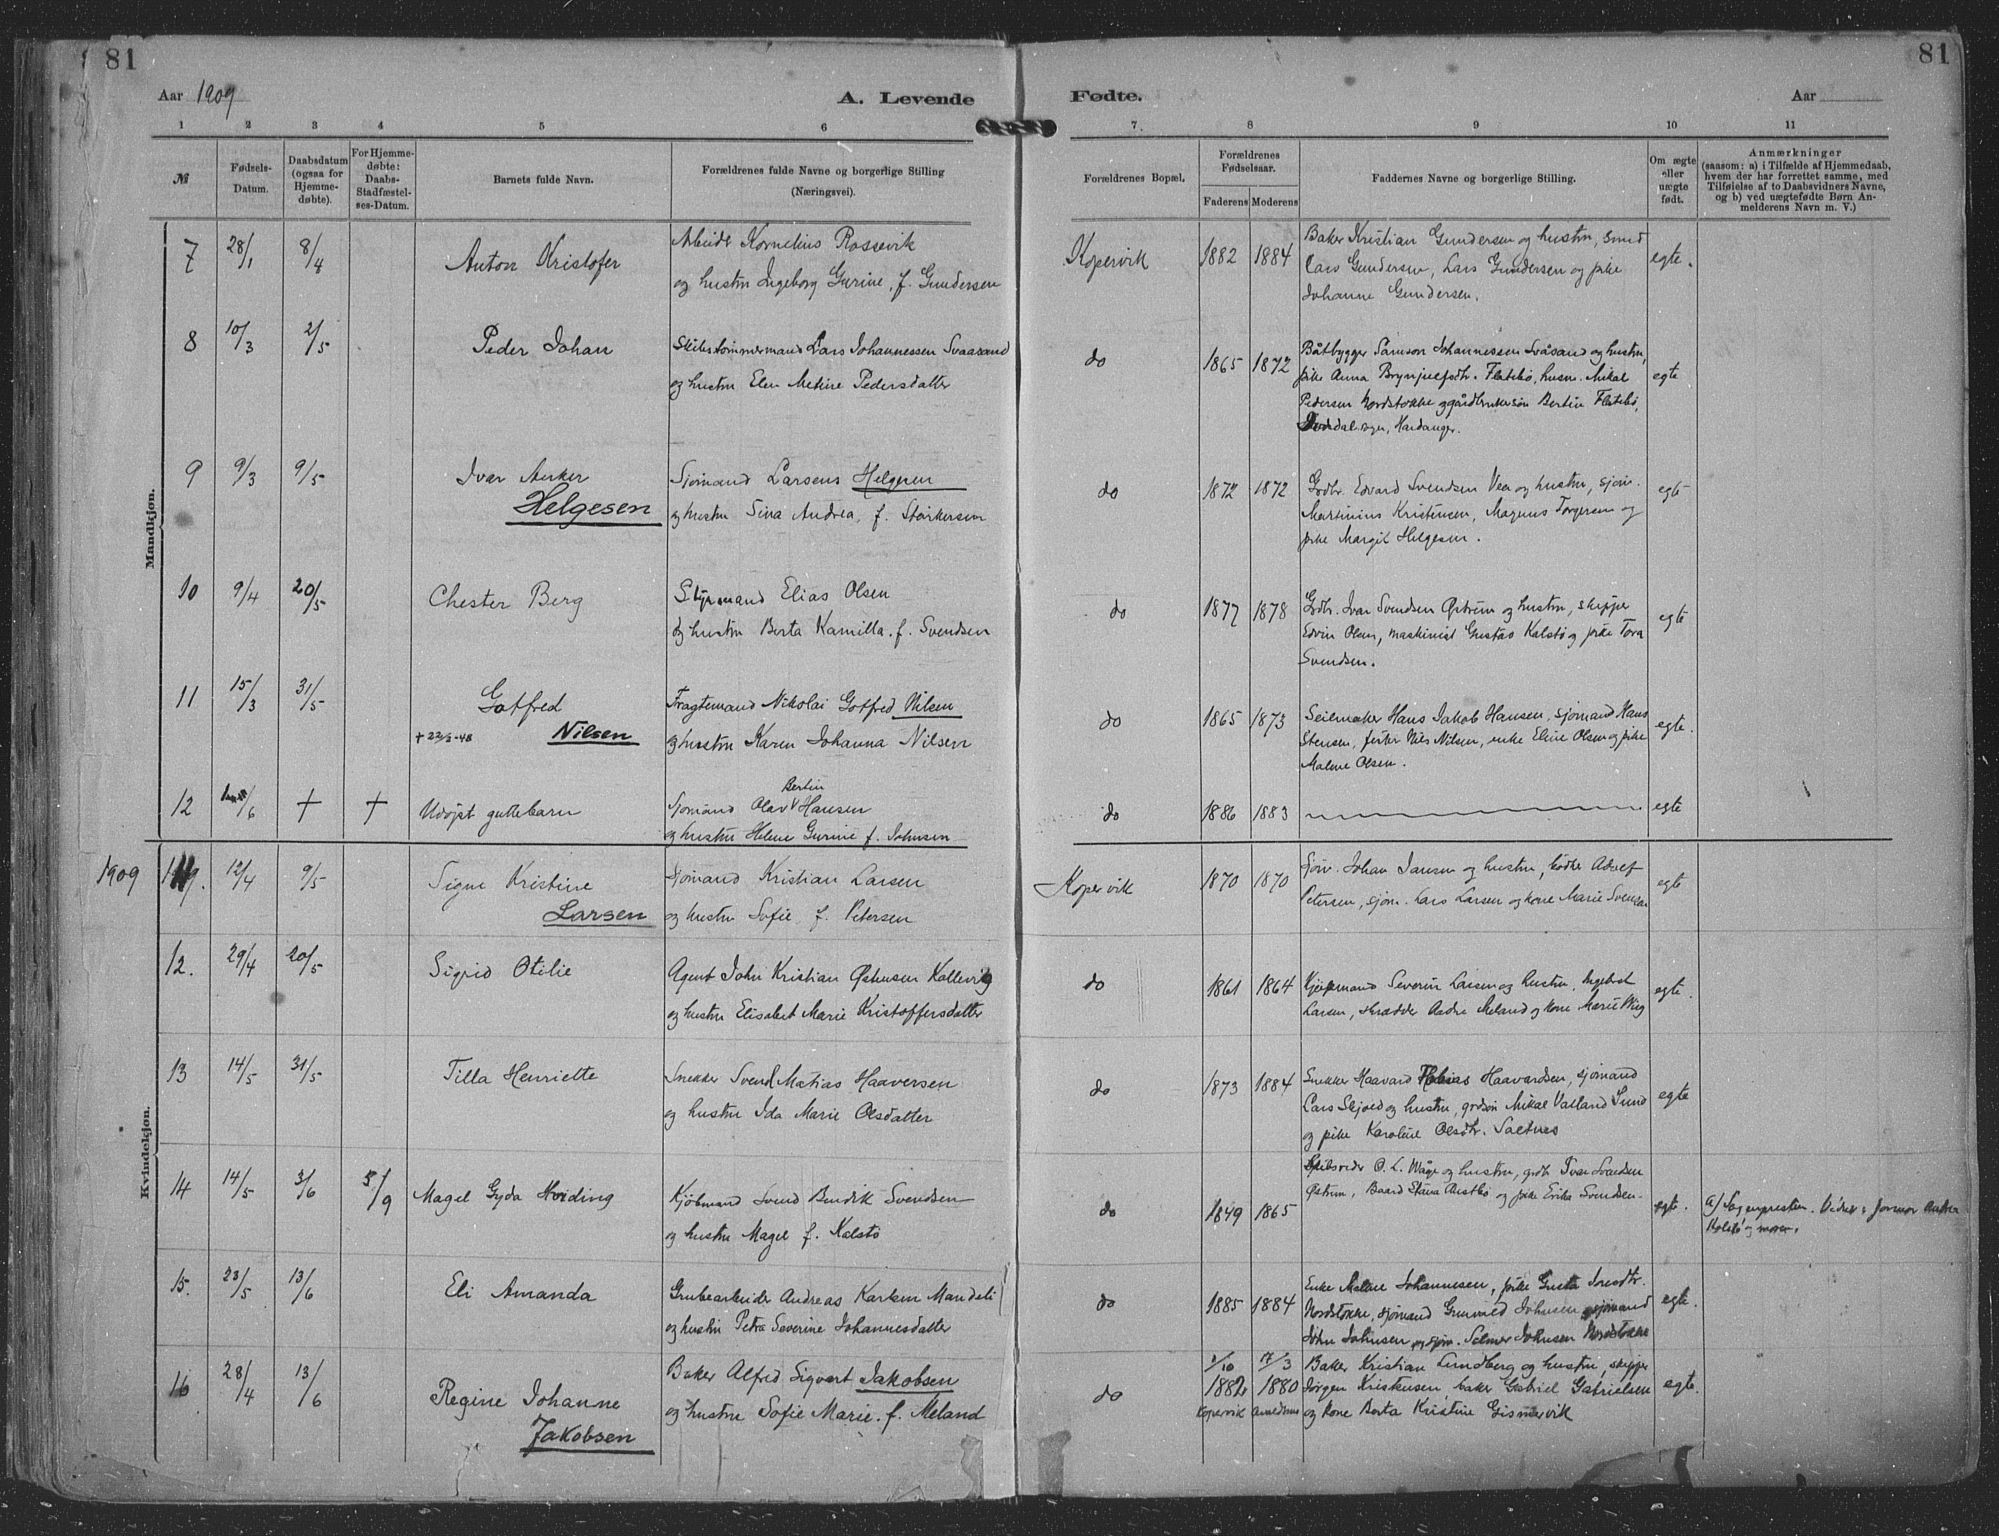 81
81
Aar 1909
A. Levende
Fødte.
Aar
1 2 3 4 5 6 7 8 9 10 11
№
Fødsels-
Datum.
Daabsdatum
(ogsaa for
Hjemme-
døbte).
For Hjemme-
døbte:
Daabs-
Stadfæstel-
ses-Datum.
Barnets fulde Navn.
Forældrenes fulde Navne og borgerlige Stilling
(Næringsvei).
Forældrenes Bopæl.
Forældrenes
Fødselsaar.
Faderens Moderens
Faddernes Navne og borgerlige Stilling.
Om ægte
eller
uægte
født.
Anmærkninger
(saasom: a) i Tilfælde af Hjemmedaab,
hvem der har forrettet samme, med
Tilføielse af to Daabsvidners Navne,
og b) ved uægtefødte Børn An-
melderens Navn m. V.)
Mandkjøn.
7 28/1 8/4 Anton Kristofer
Arbeidr Kornelius Rossevik
og hustru Ingeborg Gurine, f. Gundersen
Kopervik 1882 1884
Baker Kristian Gundersen og hustru, smed
Lars Gundersen, Lars Gundersen og pike
Johanne Gundersen.
egte.
8 10/3 2/5 Peder Johan
Skibstømmermand Lars Johannessen Svaasand
og hustru Elen Metine Pedersdatter
do 1865 1872
Båtbygger Samson Johannessen Svåsand og hustru,
pike Anna Brynjulfsdtr. Flatebø, husm. Mikal
Pedersen Nordstokke og gårdbrukersøn Bertin Flatebø,
Hardanger.
egte
9 9/3 9/5 Ivar Anker
Helgesen
Sjømand Larsens Helgesen
og hustru Sina Andrea, f. Størkersen
do 1872 1872
Grdbr. Edvard Svendsen Vea og hustru, sjøm.
Martinius Kristensen, Magnus Torgersen og
pike Margit Helgesen.
egte
10 9/4 20/5 Chester Berg
Styrmand Elias Olsen
og hustru Berta Kamilla. f. Svendsen
do 1877 1878
Grdbr. Ivar Svendsen Østrem og hustru, skipper
Edvin Olsen, maskinist Gustav Kalstø og pike Tora
Svendsen.
egte
11 15/3 31/5 Gotfred
+ 22/3-48 Nilsen
Fragtemand Nikolai Gotfred Nilsen
og hustru Karen Johanna Nilsen
do 1865 1873
Seilmaker Hans Jakob Hansen, sjømand Hans
Stensen, fisker Nils Nilsen, enke Eline Olsen og pike
Malene Olsen.
egte.
12 /6 + + Udøpt guttebarn
Bertin
Sjømand Olav V Hansen
og hustru Helene Gurine f. Johnsen
do 1886 1883
egte
Kvindekjøn.
1909 12/4 9/5 Signe Kristine
Larsen
Sjømand Kristian Larsen
og hustru Sofie, f. Petersen
Kopervik 1870 1870
Sjøm. Johan Jansen og hustru, bødker Adolf
Petersen, sjøm. Lars Larsen og kone Marie Svensen
egte
12. 29/4 20/5 Sigrid Otilie
Agent John Kristian Østensen Kallevig
og hustru Elisabet Marie Kristoffersdatter
do 1861 1864
Kjøpmand Severin Larsen og hustru, Ingebret
Larsen, skrædder Andre Meland og kone Marie Wiig
egte.
13 14/5 31/5 Tilla Henriette
Snekker Svend Matias Haaversen
og hustru Ida Marie Olsdatter
do 1873 1884
Snekker Haavard Tobias Haavardsen, sjømand
Lars Skjold og hustru, grdsøn Mikal Valland Sund
og pike Karoline Olsdtr. Saltnes
egte
14 14/5 3/6 5/9 Magel Gyda Hviding
Kjøbmand Svend Bendik Svendsen
og hustru Magel f. Kalstø
do 1849 1865
Skibsreder O. L. Våge og hustru, grdb Ivar Svendsen
Østrem, Baard Stava Austbø og pike Erika Svendsen
egte.
a) Sogneprestin. Vidner: Jormor Andrea
Kolstø og moren.
15. 23/5 13/6 Eli Amanda
Grubearbeider Andreas Karlsen Mandali
og hustru Petra Severine Johannesdatter
do 1885 1884
Enke Malene Johannesen, pike Greta
Nordstokke, sjømand Gunvald Johnsen sjømand
John Johnsen og sjøm. Selmer Johnsen Nordstokke
egte.
16 28/4 13/6 Regine Johanne
Jakobsen
Baker Alfred Sigvart Jakobsen
og hustru Sofie Marie. f. Meland
do
1/10 17/3
1882 1880
Kopervik
Baker Kristian Lundberg og hustru, skipper
Jørgen Kristensen, baker Gabriel Gabrielsen
og kone Berta Kristine Gismervik
egte.